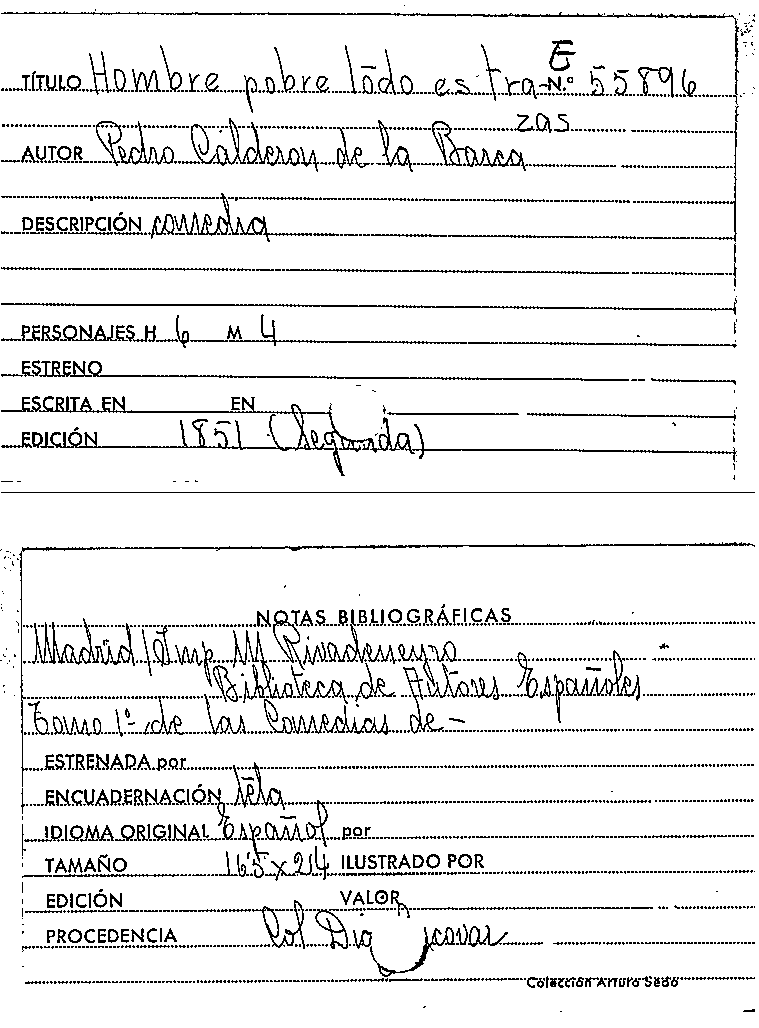 E
TÍTULO Hombre pobre tōdo es tra- N.º 55896
zas
AUTOR Pedro Calderon de la Barca
DESCRIPCIÓN comedia
PERSONAJES H 6 M 4
ESTRENO
ESCRITA EN EN
EDICIÓN 1851 (Segunda)
NOTAS BIBLIOGRÁFICAS
Madrid / Imp M Rivadeneyra
Biblioteca de Autores Españoles
Tomo 1º de las Comedias de -
ESTRENADA por
ENCUADERNACIÓN tela
IDIOMA ORIGINAL Español por
TAMAÑO 165 x 214 ILUSTRADO POR
EDICIÓN VALOR
PROCEDENCIA Col
Colección Arturo Sedó